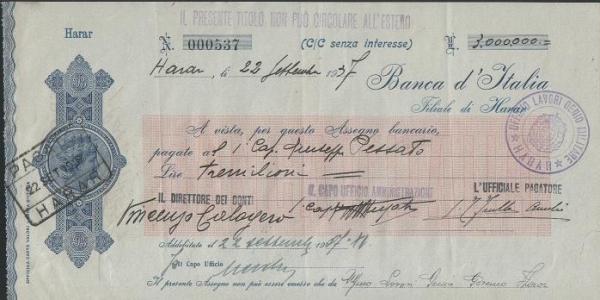 IL PRESENTE TITOLO NON PUÒ CIRCOLARE ALL'ESTERO
Harar
N. 000537
(C/C senza interesse)
L. 3.000.000.=
Harar, li 22 Settembre 1937
Banca d'Italia
Filiale di Harar
UFFICIO LAVORI GENIO MILITARE
HARAR
A vista, per questo Assegno bancario,
pagate al 1° Cap. Giuseppe Pessato
Lire tremilioni =
PAGATO
22 SET. 1937
HARAR
IL DIRETTORE DEI CONTI
IL CAPO UFFICIO AMMINISTRAZIONE
L'UFFICIALE PAGATORE
Vincenzo Calogero
1° Cap.
Addebitato il 22 settembre 1937
Il Capo Ufficio
Il presente Assegno non può essere emesso che da Ufficio Lavori Genio Governo Harar
OFFICINA CARTE VALORI